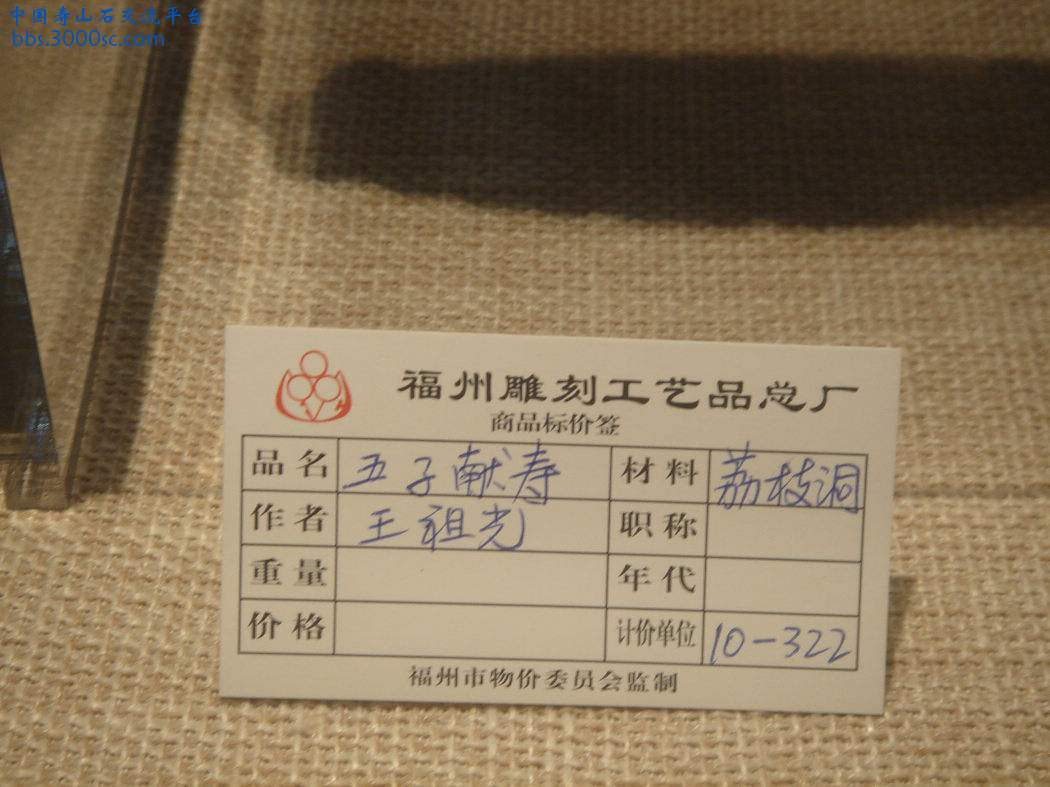 中国寿山石交流平台
bbs.3000sc.com
福州雕刻工艺品总厂
商品标价签
品名 五子献寿 材料 荔枝洞
作者 王祖光 职称
重量 年代
价格 计价单位 10-322
福州市物价委员会监制